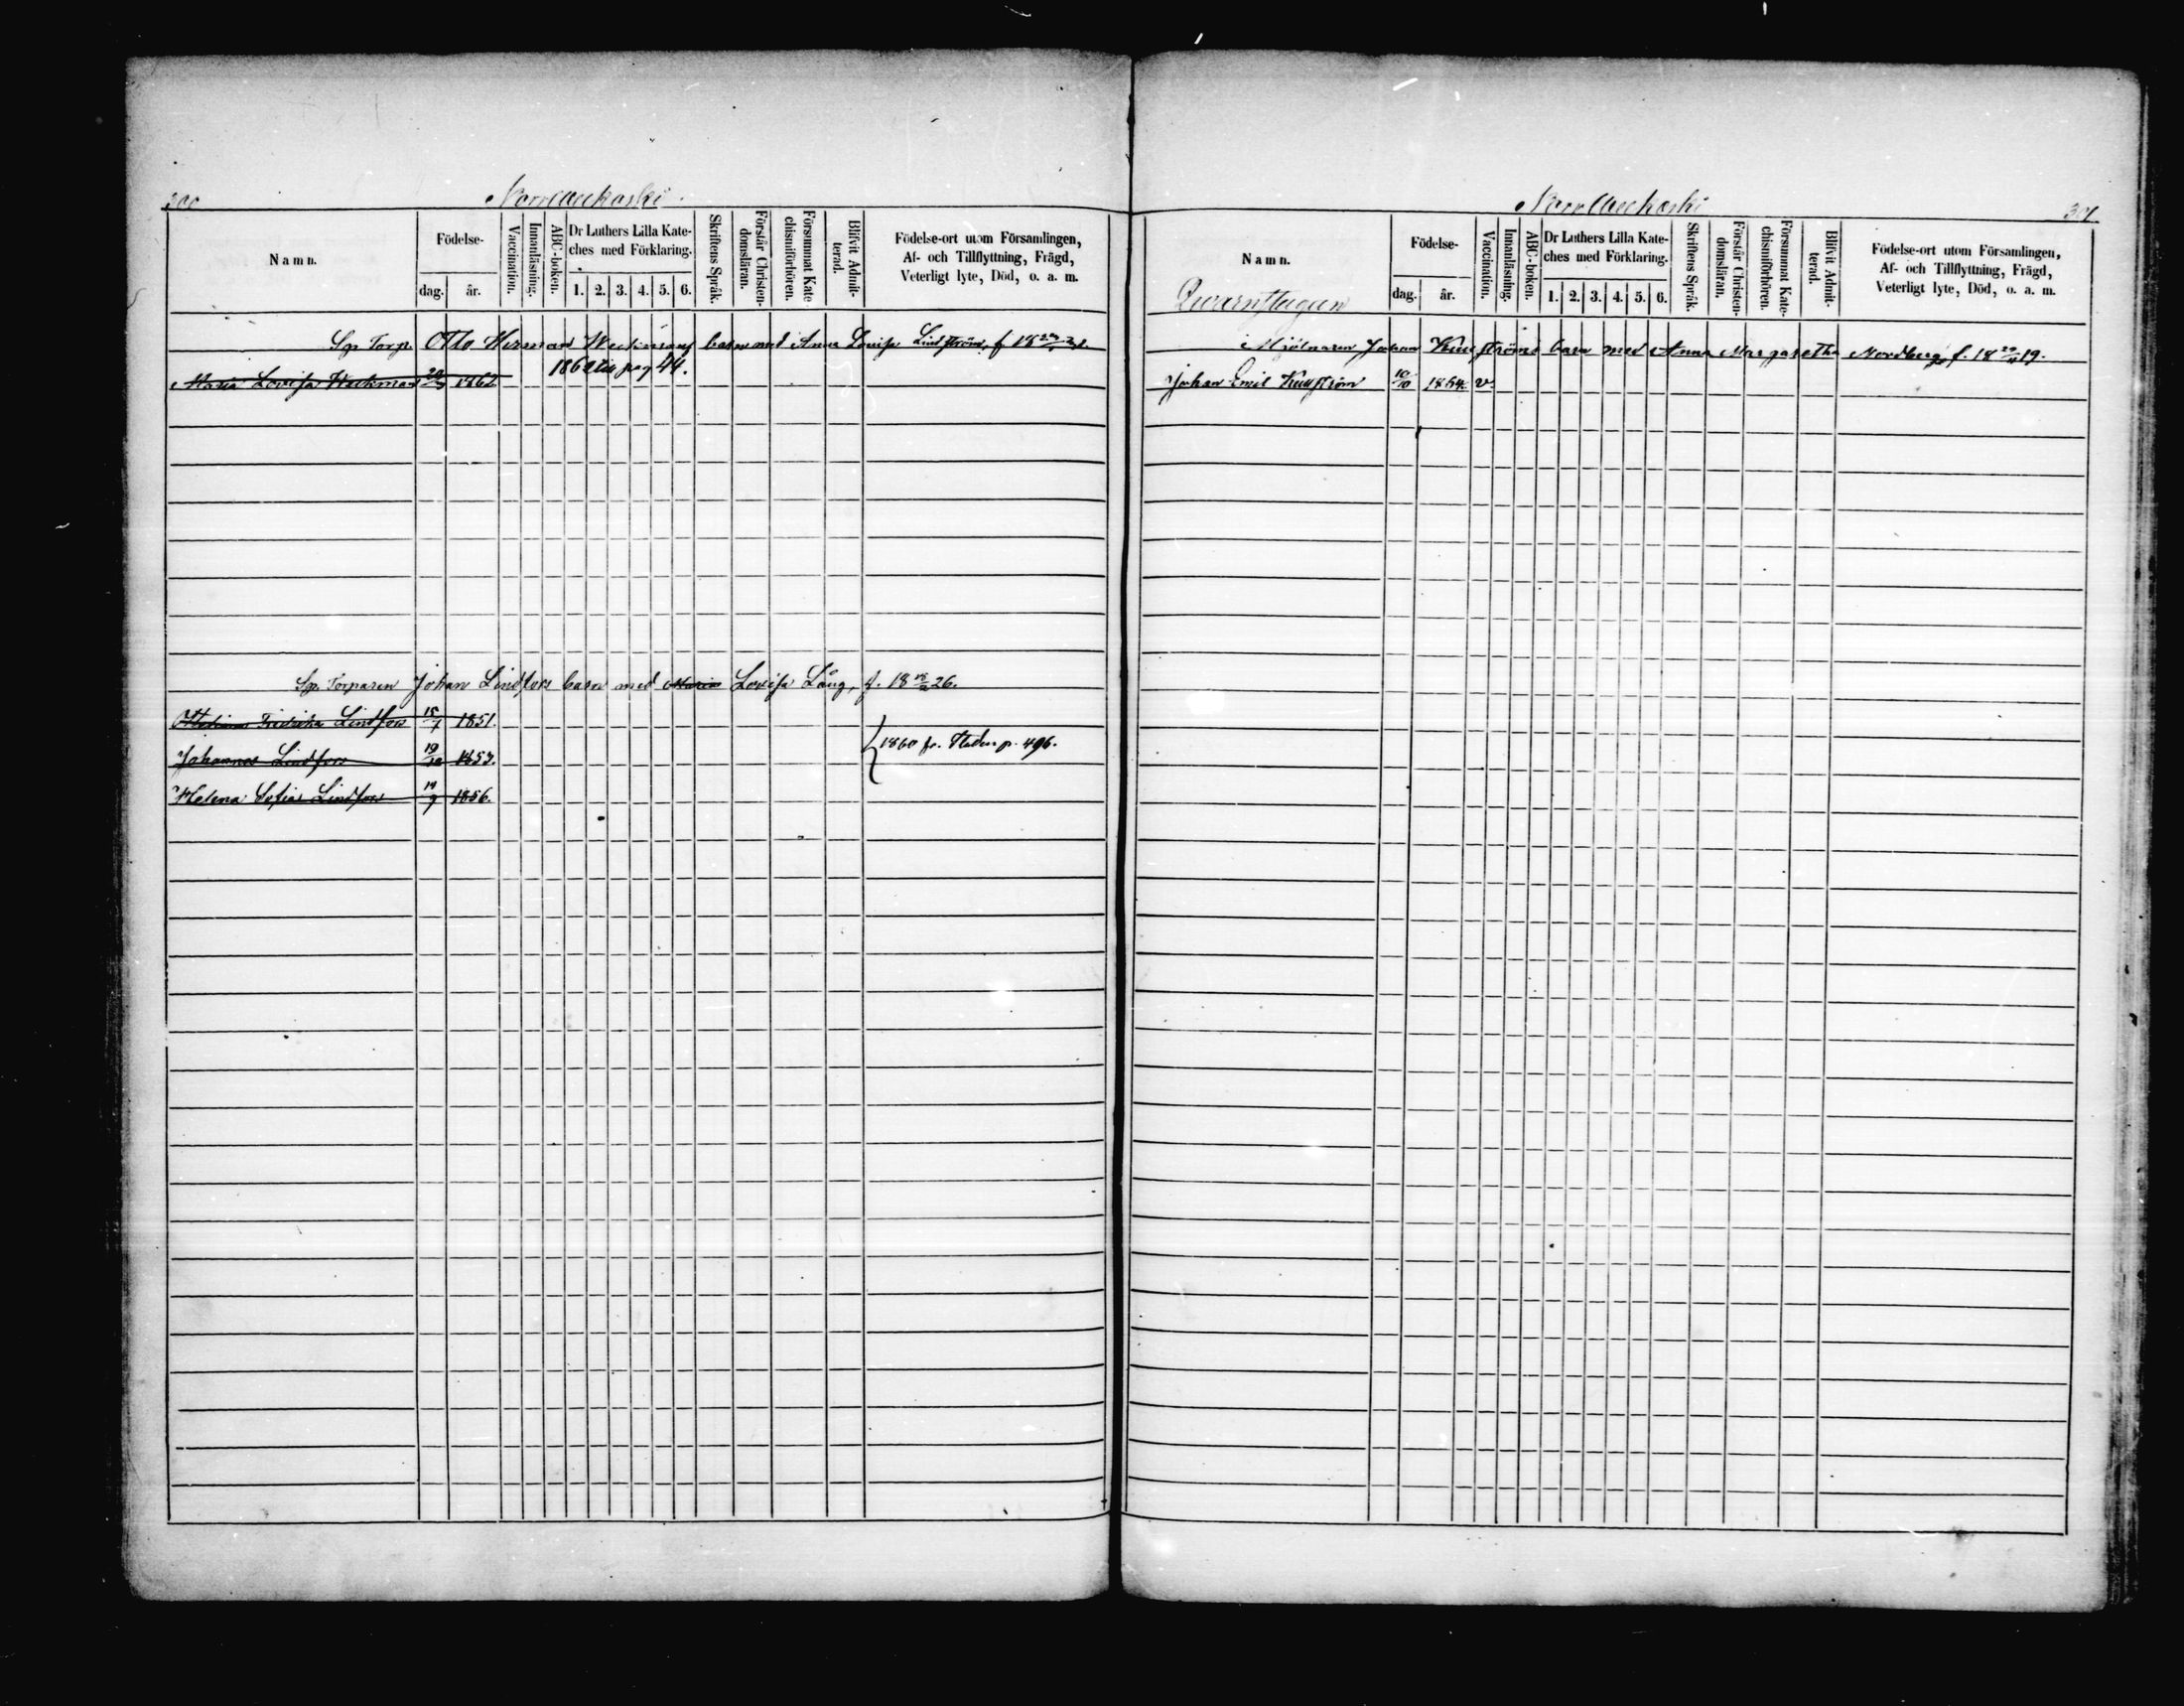 300
Namn.
Födelse-
dag.
år.
Vaccination.
Innanläsning.
ABC-boken.
Dr Luthers Lilla Kate-
ches med Förklaring.
1. 2. 3. 4. 5. 6.
Skriftens Språk.
Förstår Christen-
domsläran.
Försummat Kate-
chismiförhören.
Blifvit Admit-
terad.
Födelse-ort utom Församlingen,
Af- och Tillflyttning, Frägd,
Veterligt lyte, Död, o. a. m.
Torp. Otto Herman barn med Anna Lovisa Lindström, f 18
1862 till pag 44.
Maria Lovisa Weckman 1862
Torparen Johan Lindfors barn med Maria Lovisa Lång, f. 18 26.
Fredrika Lindfors 15/7 1851.
Johannes Lindfors 19/10 1853.
1860 fr. p. 496.
Helena Sofia Lindfors 19/9 1856.
301
Namn.
Födelse-
dag.
år.
Vaccination.
Innanläsning.
ABC-boken.
Dr Luthers Lilla Kate-
ches med Förklaring.
1. 2. 3. 4. 5. 6.
Skriftens Språk.
Förstår Christen-
domsläran.
Försummat Kate-
chismiförhören.
Blifvit Admit-
terad.
Födelse-ort utom Församlingen,
Af- och Tillflyttning, Frägd,
Veterligt lyte, Död, o. a. m.
Mjölnaren Johan barn med Anna Margaretha Nordberg, f. 18 19.
Johan Emil 10/10 1854. v.